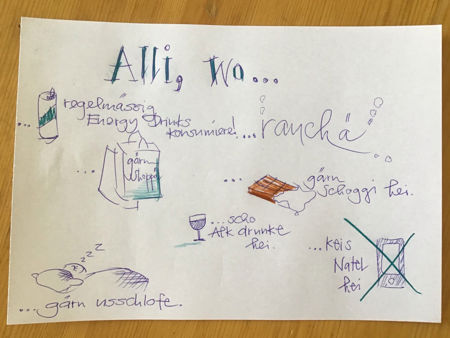 Alli, wo...
... regelmässig
Energy Drinks
konsumiere!
... rauchä
... gärn
shoppä
... gärn
schoggi hei.
... scho
Alk drunke
hei.
... keis
Natel
hei
zzz
... gärn usschlofe.